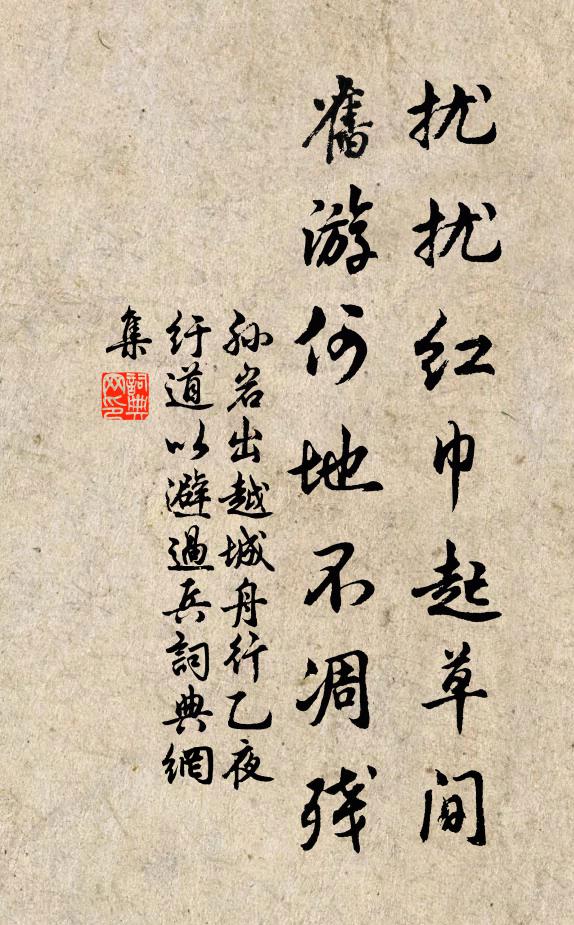 扰扰红巾起草间
舊游何地不凋残
孙岩出越城舟行乙夜
纡道以避過兵詞典網
集
詞典网印